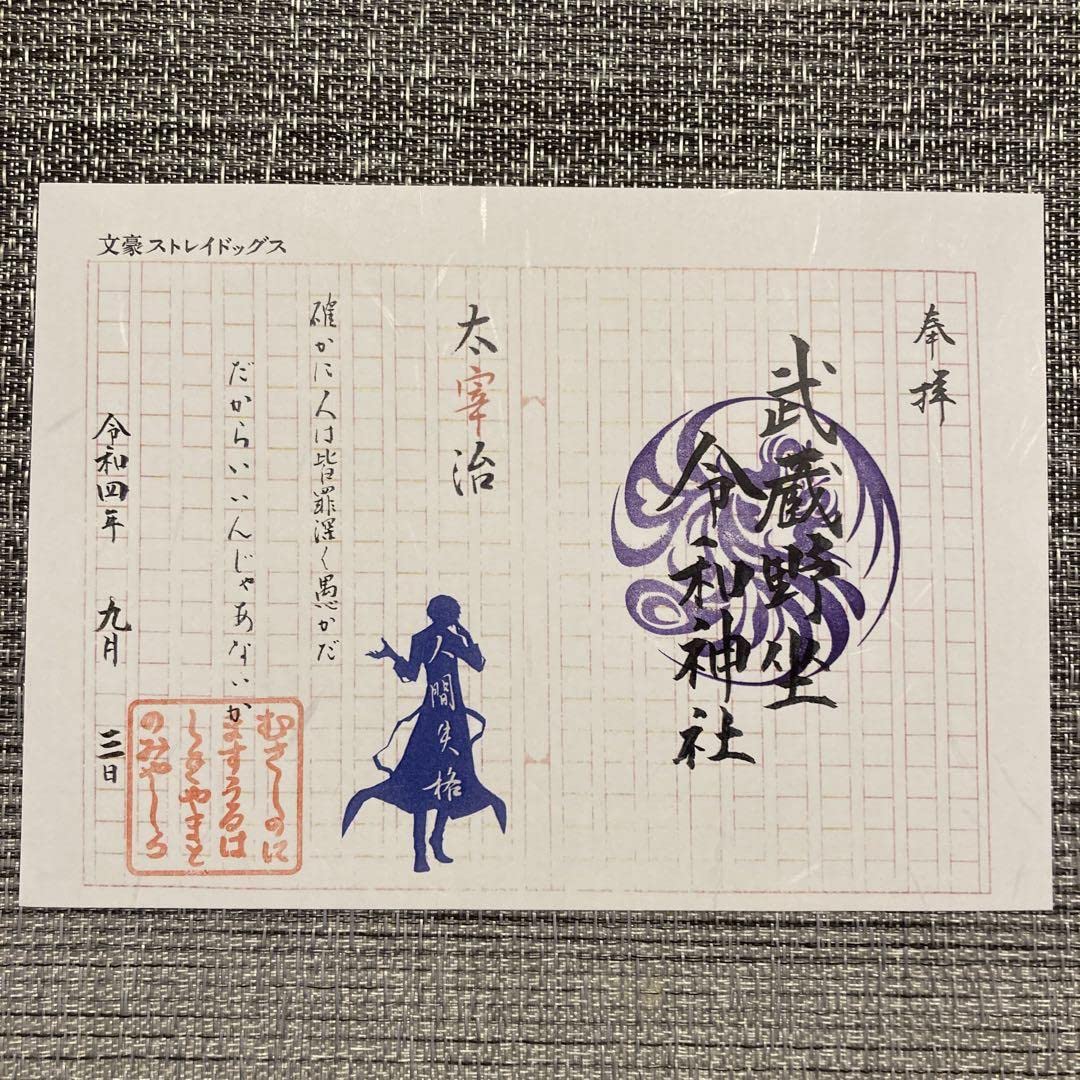 文豪ストレイドッグス
奉拝
武蔵野坐
令和神社
太宰治
確かに人は皆罪深く愚かだ
だからいいんじゃあないか
人間失格
令和四年 九月 三日
むさしのに
ますうるは
しきやまと
のみやしろ